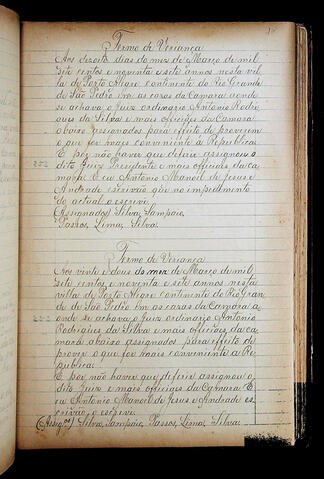 Termo de Veriança
Aos dezoito dias do mez de Março de mil
sete centos e noventa e sete annos nesta vil
la de Porto Alegre continente do Rio Grande
de São Pedro em as casas da Camara aonde
se achava o Juiz ordinario Antonio Rodri
gues da Silva e mais officiaes da Camara
abaixo assignados para effeito de proverem
o que for mais conveniente a Republica.
E por não haver que deferir assignou o
dito Juiz Presidente e mais officiaes da ca
mara. Eu Antonio Manoel de Jesus e
Andrade escrivão que no impedimento
do actual o escrevi.
(Assignados) Silva, Sampaio,
Passos, Lima, Silva.
Termo de Veriança
Aos vinte e dous do mez de Março de mil
sete centos e noventa e sete annos nesta
villa de Porto Alegre continente do Rio Gran
de de São Pedro em as casas da Camara a
onde se achava o Juiz ordinario Antonio
Rodrigues da Silva e mais officiaes da ca
mara abaixo assignados para effeito de
prover o que for mais conveniente a Re
publica.
E por não haver que deferir assignou o
dito Juiz e mais officiaes da Camara. E
eu Antonio Manoel de Jesus e Andrade es
crivão o escrevi.
(Assigos) Silva, Sampaio, Passos, Lima, Silva.